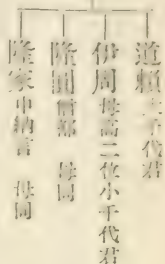 道頼大千代君
伊周母高二位小千代君
隆圓僧都 母同
隆家中納言 母同